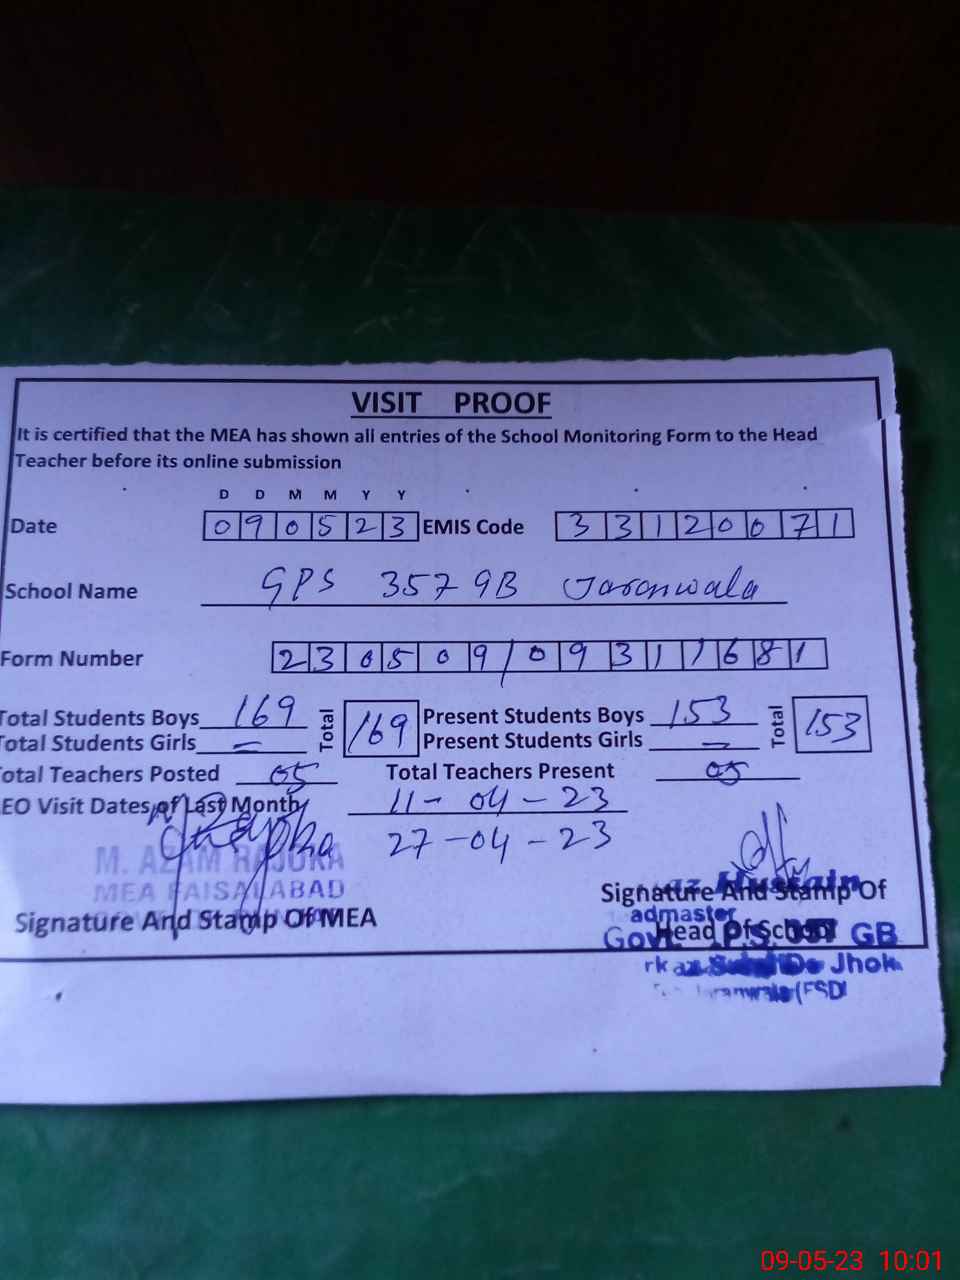 VISIT PROOF
It is certified that the MEA has shown all entries of the School Monitoring Form to the Head
Teacher before its online submission
D D M M Y Y
Date 0 9 0 5 2 3 EMIS Code 3 3 1 2 0 0 7 1
School Name GPS 357 GB Jaranwala
Form Number 2 3 0 5 0 9 / 0 9 3 1 1 6 8 1
Total Students Boys 169 Total 169 Present Students Boys 153 Total 153
Total Students Girls — Present Students Girls —
Total Teachers Posted 05 Total Teachers Present 05
EO Visit Dates of Last Month 11-04-23
27-04-23
M. AZAM RAJOKA
MEA FAISALABAD
Signature And Stamp Of MEA
az Hussain
Signature And Stamp Of
admaster
Head Of School
Govt. P.S. 357 GB
rkaz Jhok
Jaranwala (FSD)
09-05-23 10:01